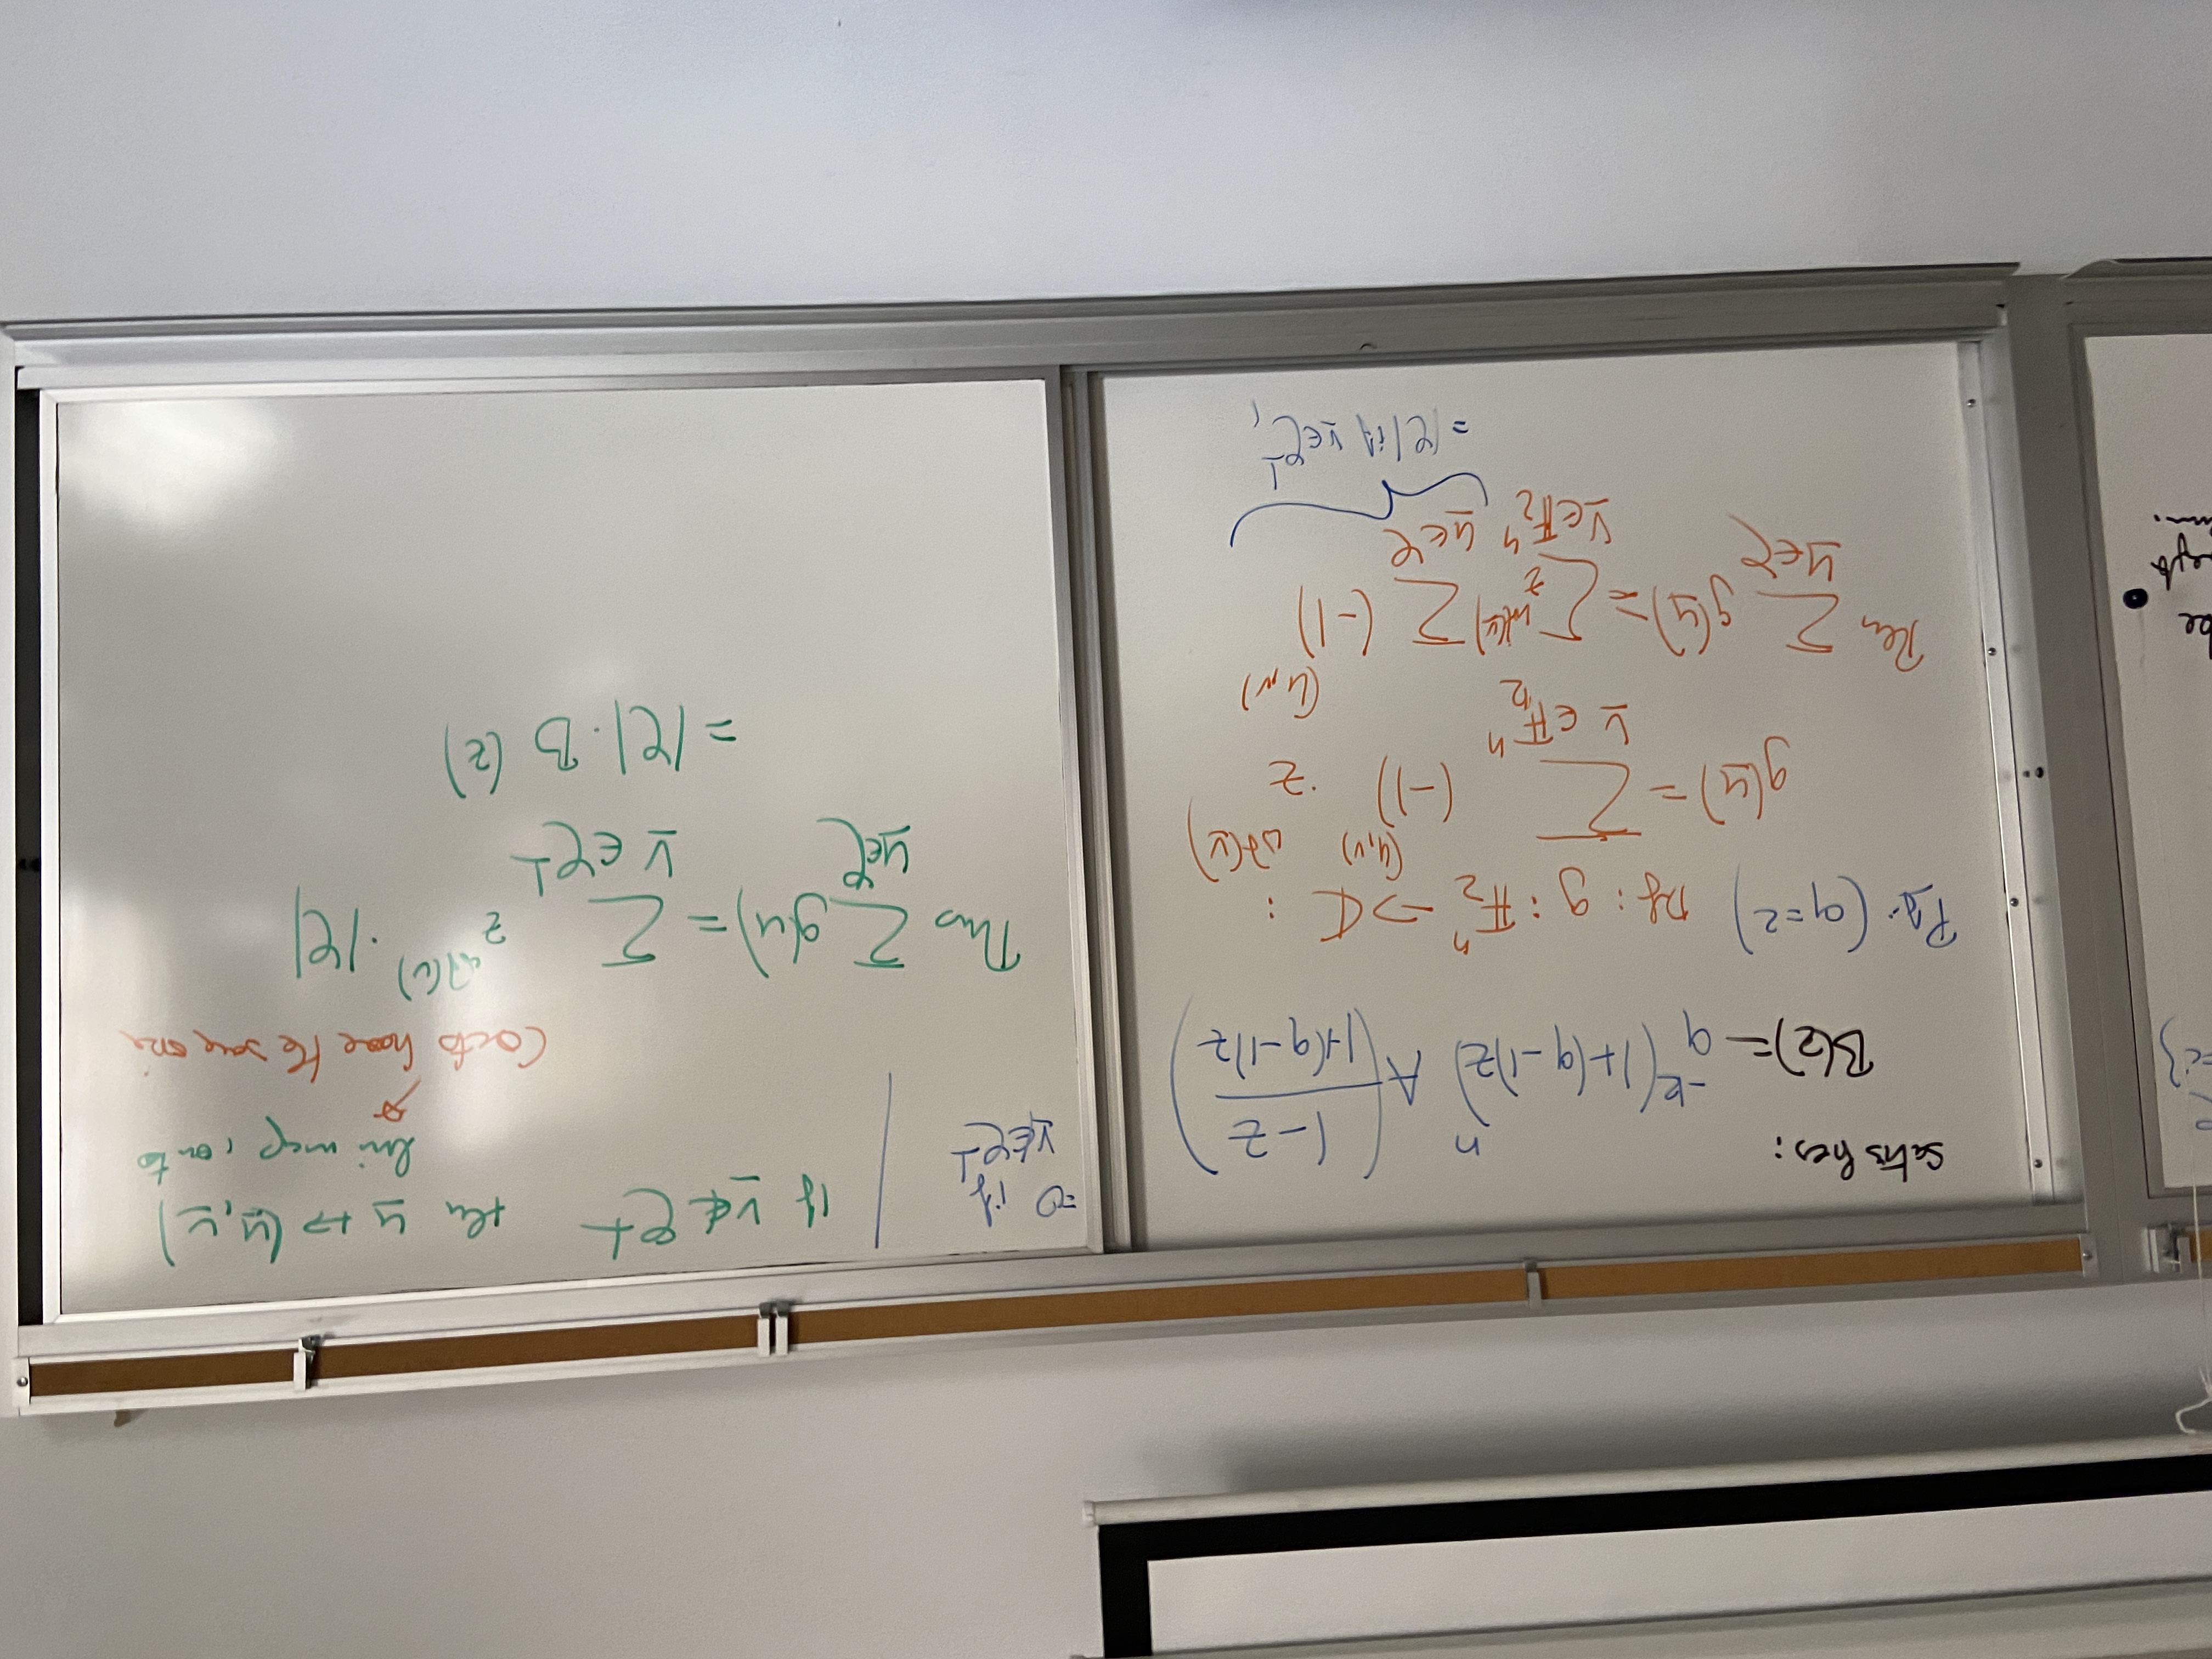 satisfies:
B(z) = q^{-k} (1+(q-1)z)^n A((1-z)/(1+(q-1)z))
Pf. (q=2) Df: g: 𝔽_2^n → ℂ :
g(u) = Σ_{v∈𝔽_2^n} (-1)^{(u,v)} · z^{wt(v)}
Then Σ_{u∈C} g(u) = Σ_{v∈𝔽_2^n} z^{wt(v)} Σ_{u∈C} (-1)^{(u,v)}
= |C| if v∈C^⊥,
=0 if
v∉C^⊥
if v∉C^⊥ then u ↦ (u,v)
lin map, onto
Cosets have the same size
Thus Σ_{u∈C} g(u) = Σ_{v∈C^⊥} z^{wt(v)} · |C|
= |C| · B(z)
be